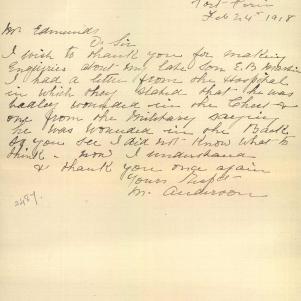 Port Pirie
Feb 24th 1918
Mr Edmunds
Dr Sir
I wish to thank you for making
Enquiries about my late son E.B.
I had a letter from the Hospital
in which they stated that he was
badley wounded in the Chest &
one from the Military saying
he was wounded in the Back
so you see I did not know what to
think - now I understand
& thank you once again
Yours Respt
M. Anderson
2487.